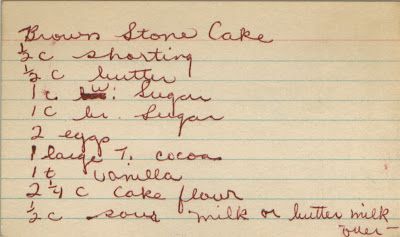 Brown Stone Cake
½ c shorting
½ c butter
1 c w: Sugar
1 C br. Sugar
2 eggs
1 large T. cocoa
1 t vanilla
2 ¼ C Cake flour
½ c sour milk or butter milk
over —